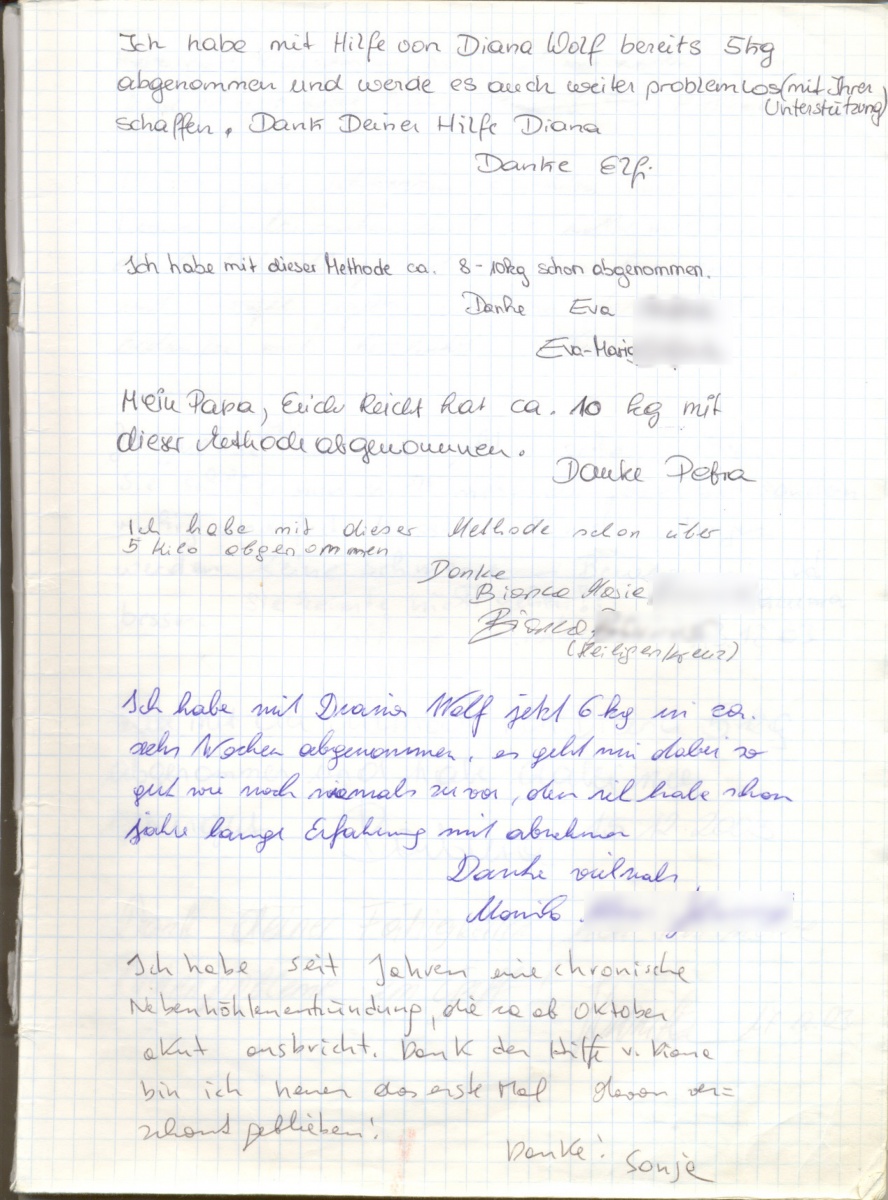 Ich habe mit Hilfe von Diana Wolf bereits 5kg
abgenommen und werde es auch weiter problemlos (mit Ihrer
Unterstützung)
schaffen. Dank Deiner Hilfe Diana
Danke Elfi.
Ich habe mit dieser Methode ca. 8-10kg schon abgenommen.
Danke Eva
Eva-Maria
Mein Papa, Erich Reicht hat ca. 10 kg mit
dieser Methode abgenommen.
Danke Petra
Ich habe mit dieser Methode schon über
5 Kilo abgenommen
Danke
Bianca Maria
Bianca
(Heiligenkreuz)
Ich habe mit Diana Wolf jetzt 6 kg in ca.
sechs Wochen abgenommen, es geht mir dabei so
gut wie noch niemals zuvor, den ich habe schon
jahre lange Erfahrung mit abnehmen
Danke vielmals,
Monika
Ich habe seit Jahren eine chronische
Nebenhöhlenentzündung, die ca ab Oktober
akut ausbricht. Dank der Hilfe v. Diana
bin ich heuer das erste Mal davon ver=
schont geblieben!
Danke! Sonja